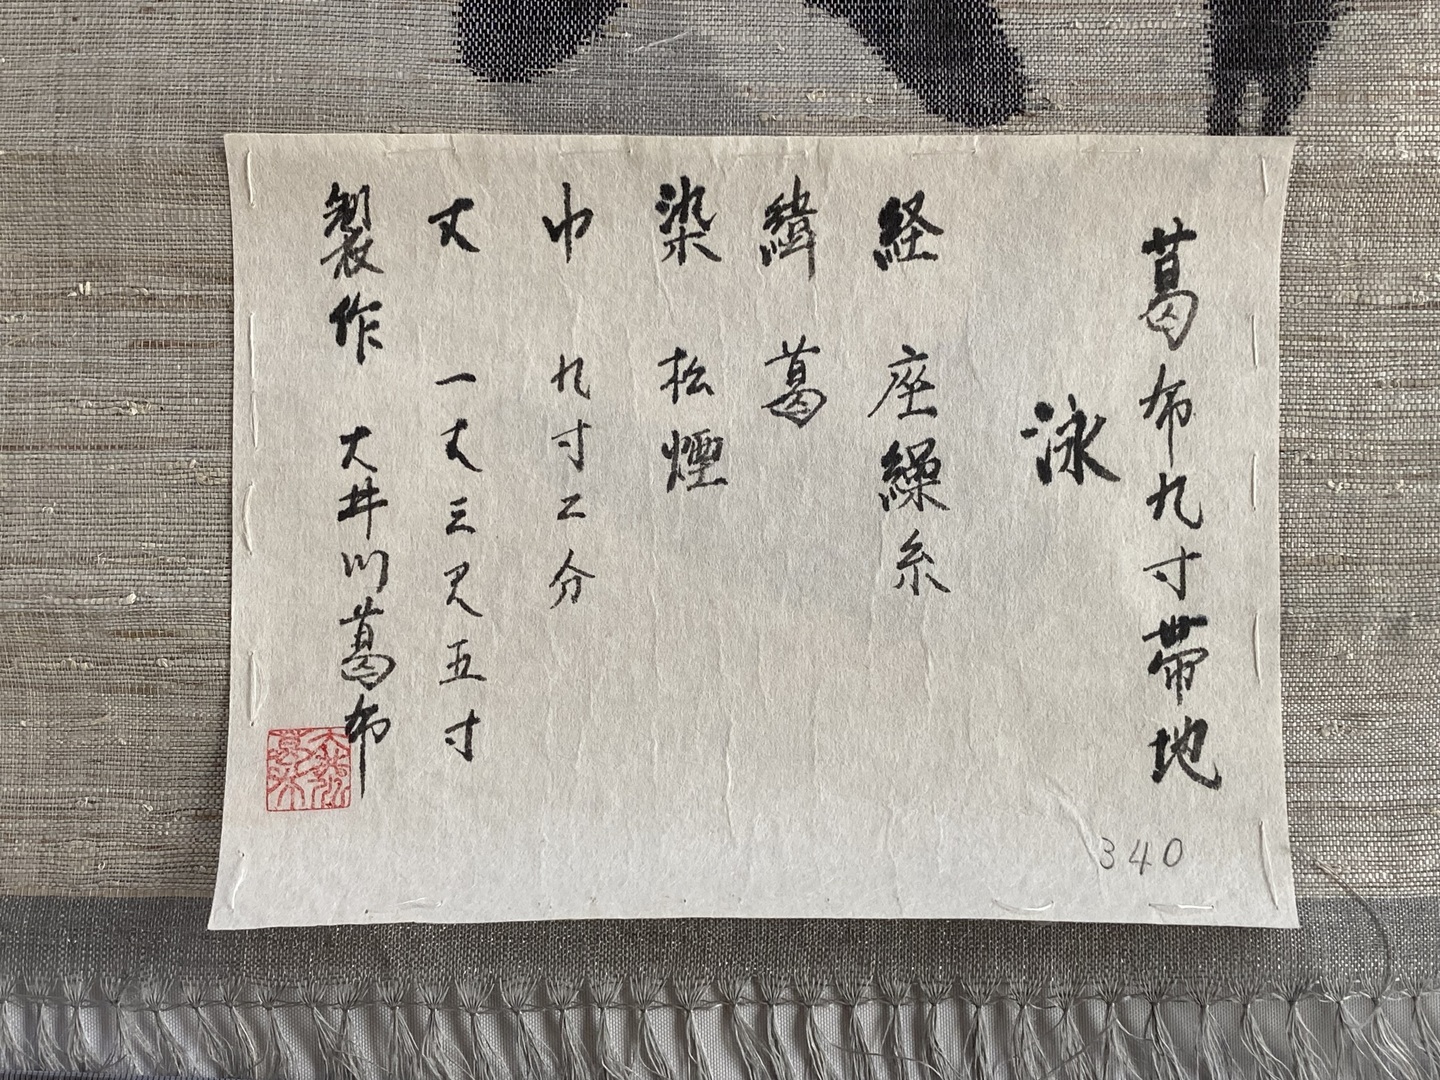 葛布九寸帯地
泳
経 座繰糸
緯 葛
染 松煙
巾 九寸二分
丈 一丈三尺五寸
製作 大井川葛布
340